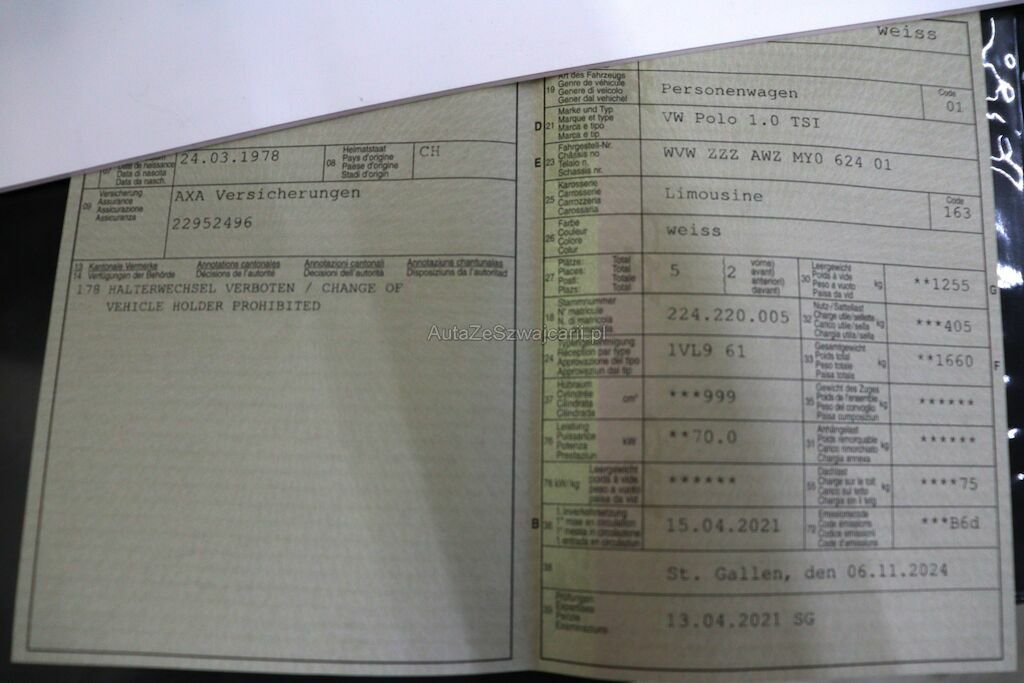 weiss
07 Data de naissance
Data di nascita
Data da nasch.
24.03.1978
08 Heimatstaat
Pays d'origine
Paese d'origine
Stadi d'origin
CH
09 Versicherung
Assurance
Assicurazione
Assicuranza
AXA Versicherungen
22952496
13 Kantonale Vermerke
Annotations cantonales
Annotazioni cantonali
Annotaziuns chantunalas
14 Verfügungen der Behörde
Décisions de l'autorité
Decisioni dell'autorità
Disposiziuns da l'autoritad
178 HALTERWECHSEL VERBOTEN / CHANGE OF
VEHICLE HOLDER PROHIBITED
19 Art des Fahrzeugs
Genre de véhicule
Genere di veicolo
Gener dal vehichel
Personenwagen
Code
01
D 21 Marke und Typ
Marque et type
Marca e tipo
Marca e tip
VW Polo 1.0 TSI
E 23 Fahrgestell-Nr.
Châssis no
Telaio n.
Schassis nr.
WVW ZZZ AWZ MY0 624 01
25 Karosserie
Carrosserie
Carrozzeria
Carossaria
Limousine
Code
163
26 Farbe
Couleur
Colore
Colur
weiss
27 Plätze: Total
Places: Total
Posti: Totale
Plazs: Total
5
2
vorne)
avant)
anteriori)
davant)
30 Leergewicht
Poids à vide
Peso a vuoto
Paisa da vid
kg
**1255
G
18 Stammnummer
N° matricule
N. di matricola
224.220.005
32 Nutz-/Sattellast
Charge utile/sellette
Carico utile/sella
Chargia utila/sella
kg
***405
24 Typengenehmigung
Réception par type
Approvazione del tipo
Approvaziun dal tip
1VL9 61
33 Gesamtgewicht
Poids total
Peso totale
Paisa totala
kg
**1660
F
37 Hubraum
Cylindrée
Cilindrata
Cilindrada
cm³
***999
35 Gewicht des Zuges
Poids de l'ensemble
Peso del convoglio
Paisa cumposiziun
kg
******
76 Leistung
Puissance
Potenza
Prestaziun
kW
**70.0
31 Anhängelast
Poids remorquable
Carico rimorchiato
Chargia annexa
kg
******
78 kW/kg
Leergewicht
poids à vide
peso a vuoto
paisa da vid
******
55 Dachlast
Charge sur le toit
Carico sul tetto
Chargia sin il tetg
kg
****75
B 36 1. Inverkehrsetzung
1re mise en circulation
1a messa in circolazione
1. entrada en circulaziun
15.04.2021
72 Emissionscode
Code émissions
Codice emissioni
Code d'emissiuns
***B6d
38
St. Gallen, den 06.11.2024
39 Prüfungen
Expertises
Perizie
Examinaziuns
13.04.2021 SG
AutaZeSzwajcarii.pl